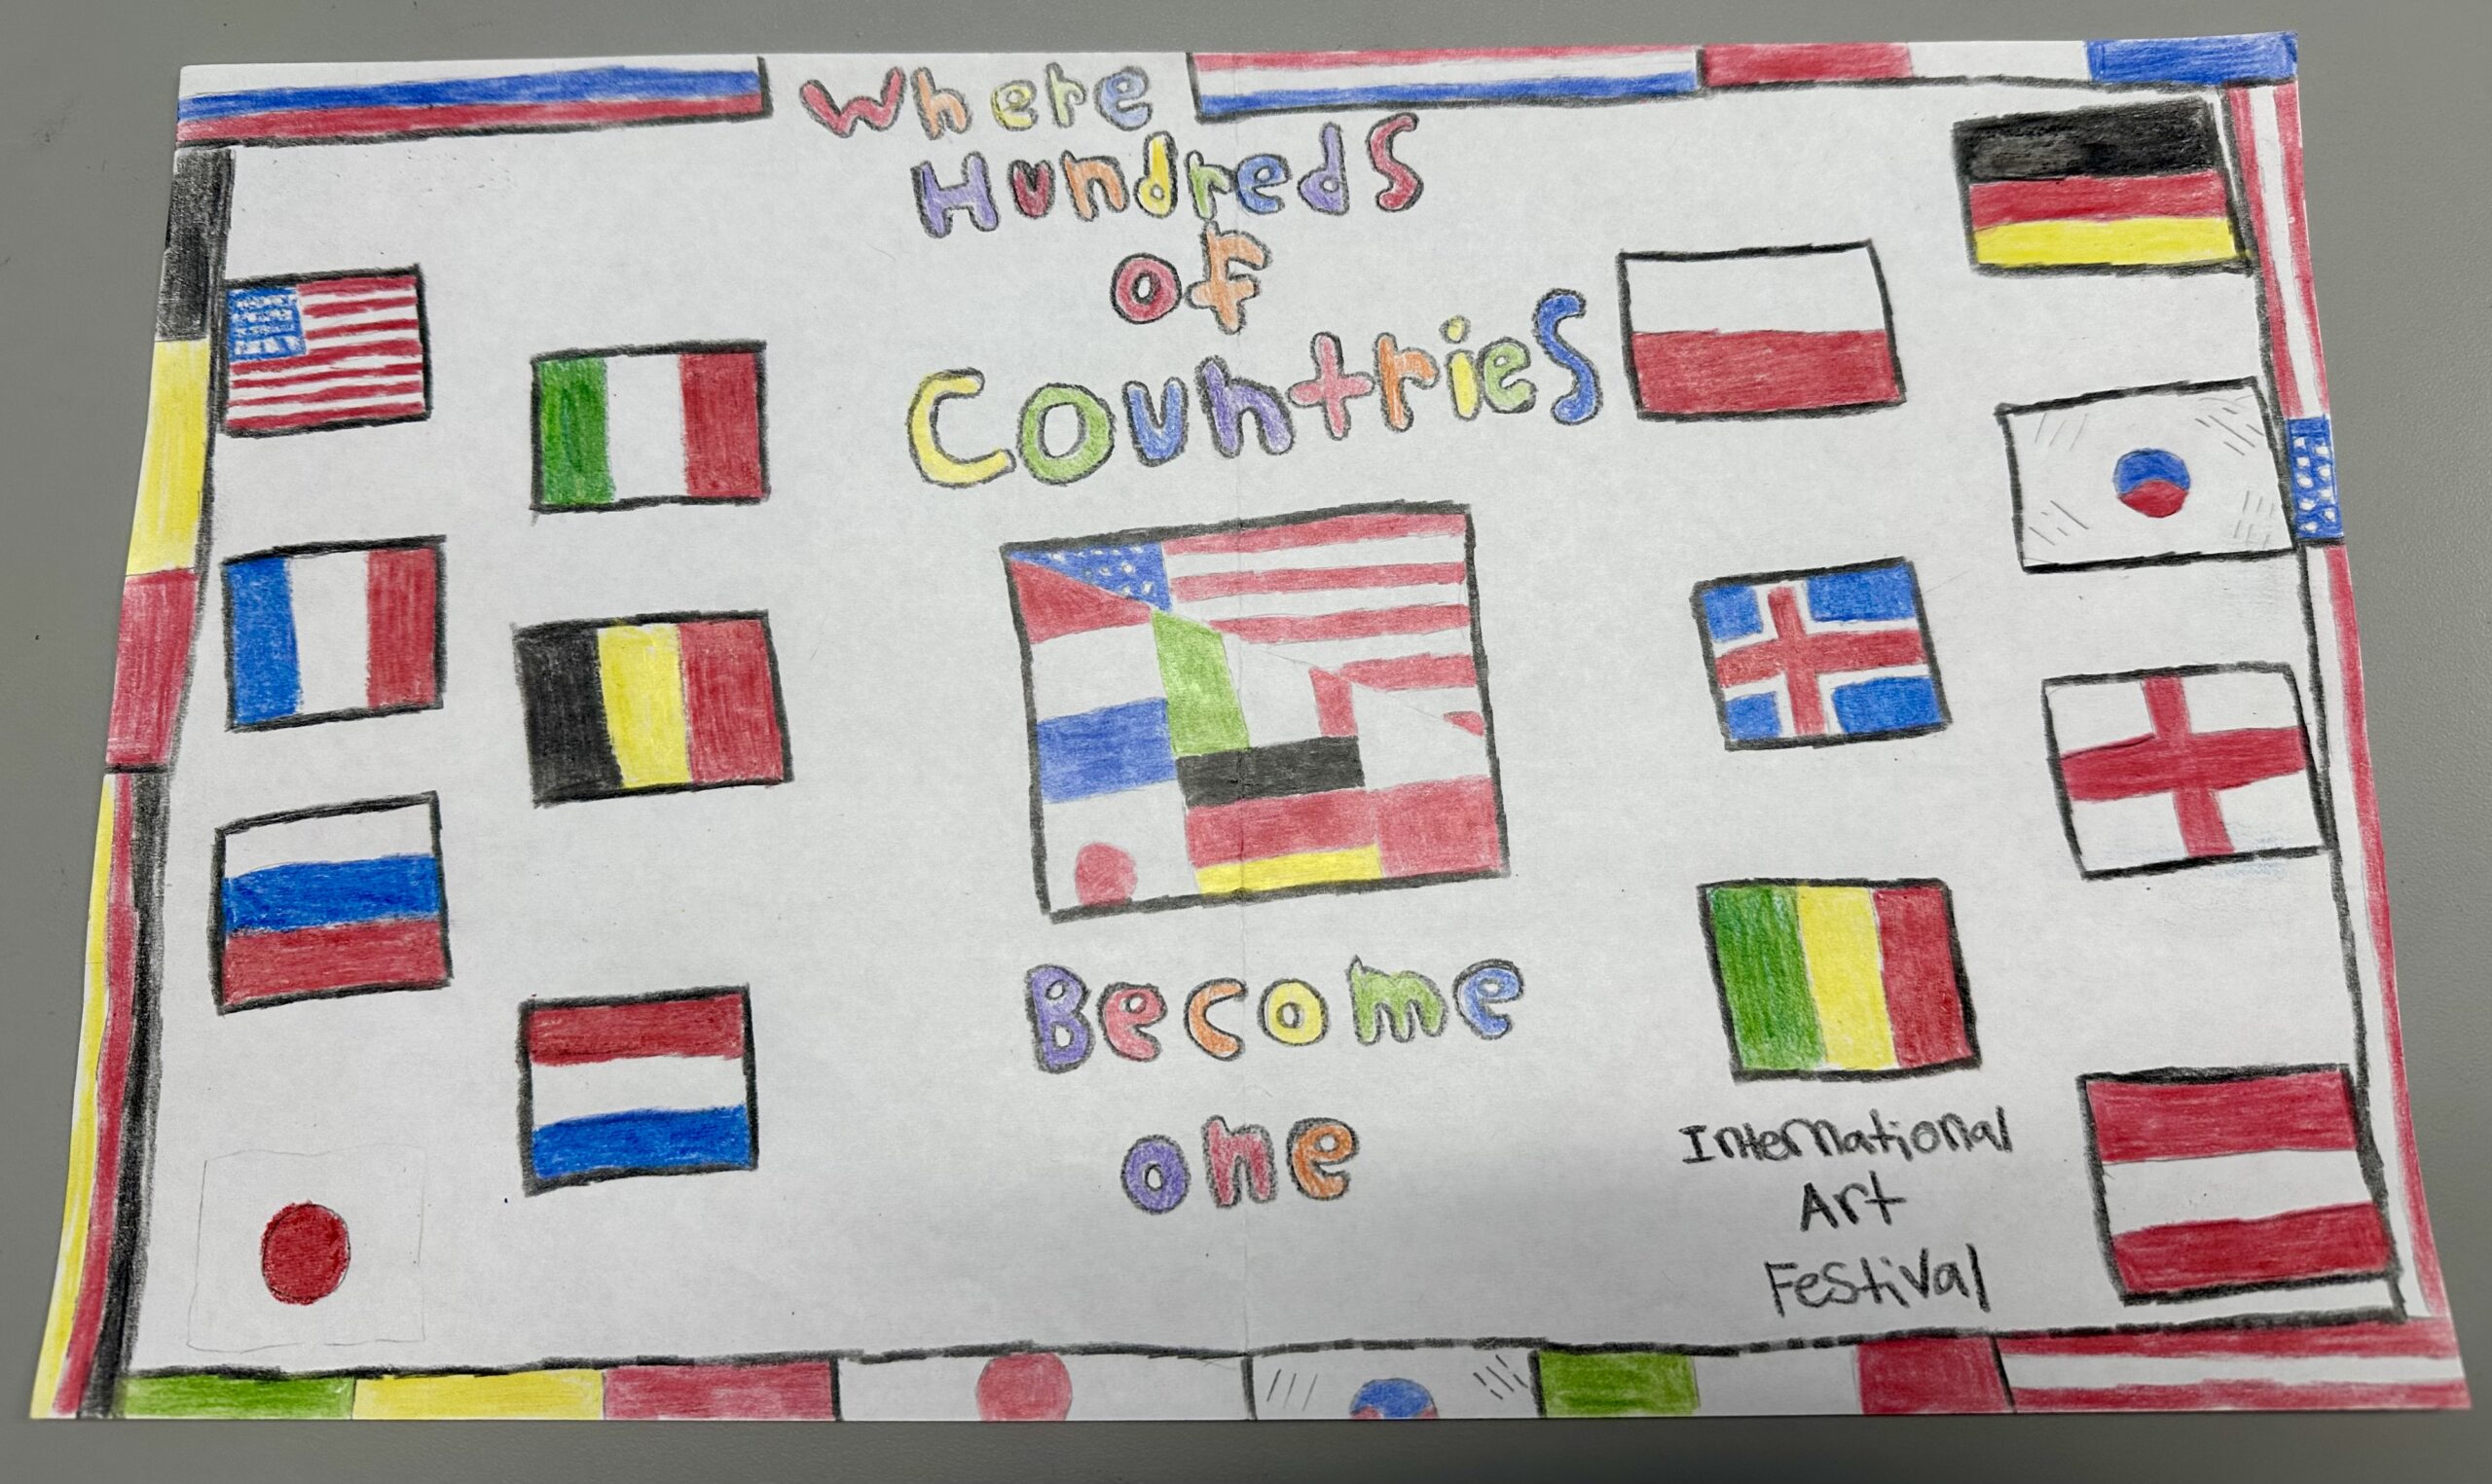 Where
Hundreds
of
Countries
Become
one
International
Art
Festival